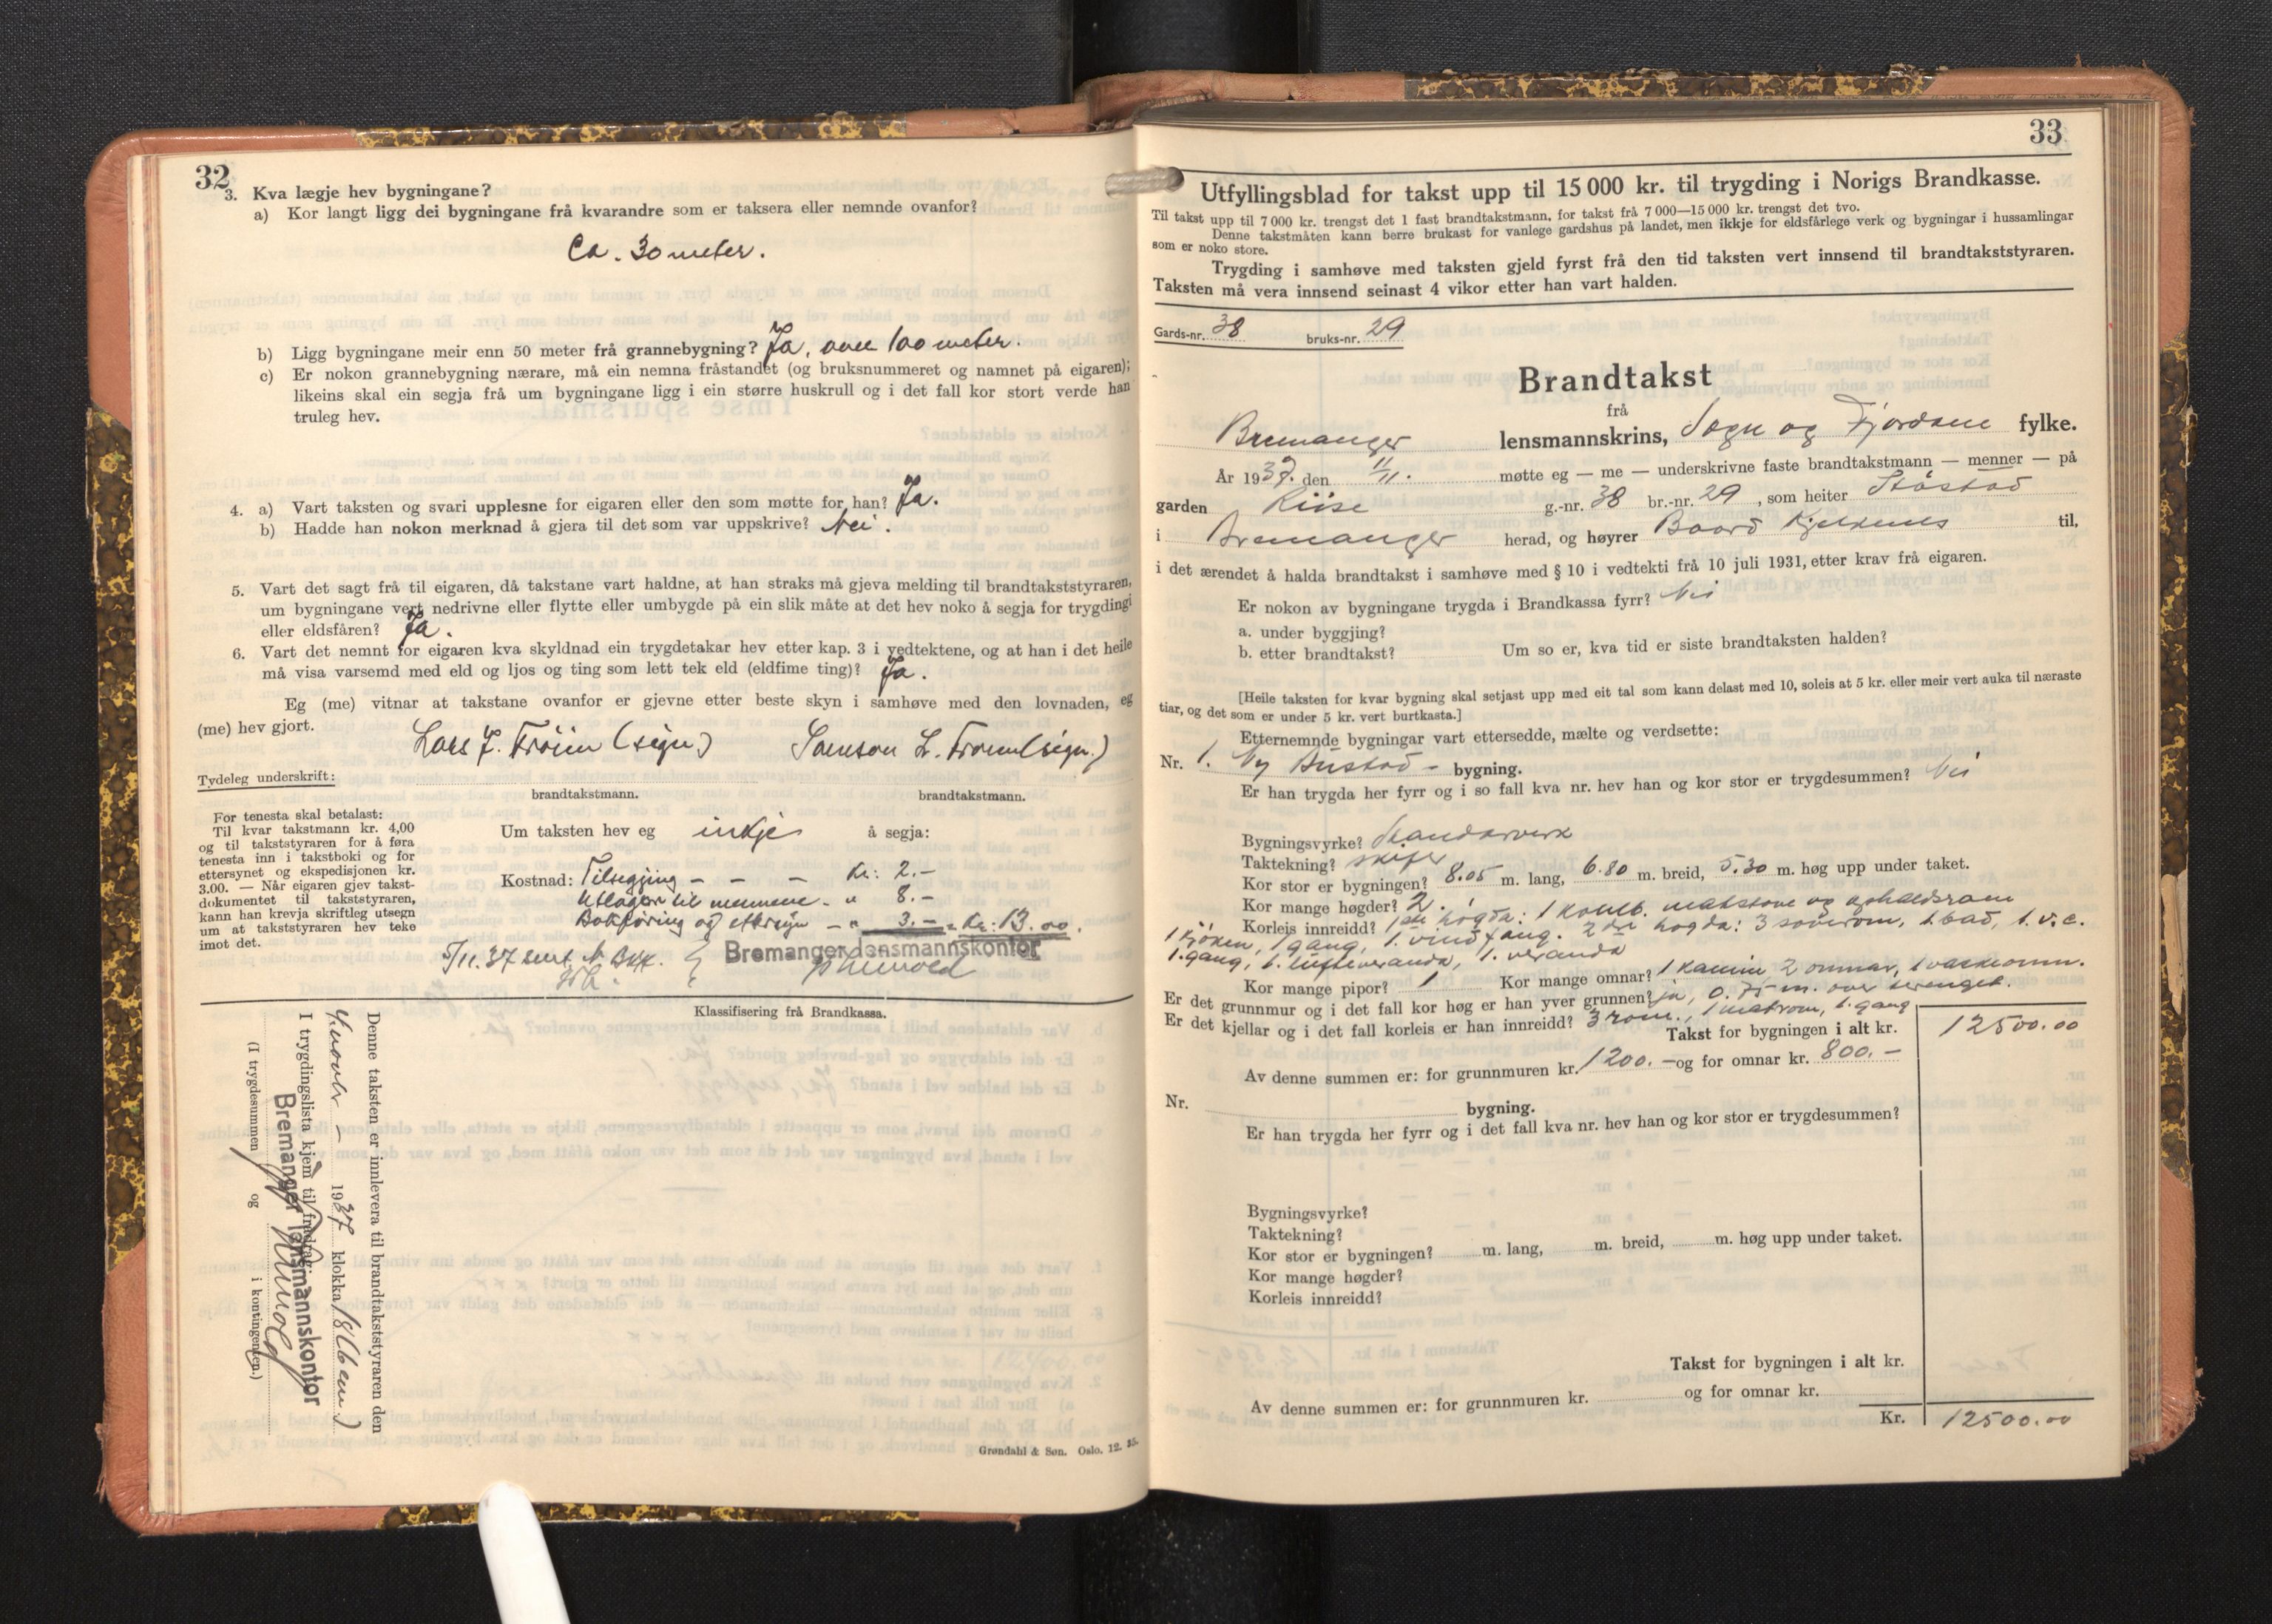 32
3. Kva lægje hev bygningane?
a) Kor langt ligg dei bygningane frå kvarandre som er taksera eller nemnde ovanfor?
Ca. 30 meter.
b) Ligg bygningane meir enn 50 meter frå grannebygning? Ja, over 100 meter.
c) Er nokon grannebygning nærare, må ein nemna fråstandet (og bruksnummeret og namnet på eigaren);
likeins skal ein segja frå um bygningane ligg i ein større huskrull og i det fall kor stort verde han
truleg hev.
4. a) Vart taksten og svari upplesne for eigaren eller den som møtte for han? Ja.
b) Hadde han nokon merknad å gjera til det som var uppskrive? Nei.
5. Vart det sagt frå til eigaren, då takstane vart haldne, at han straks må gjeva melding til brandtakststyraren,
um bygningane vert nedrivne eller flytte eller umbygde på ein slik måte at det hev noko å segja for trygdingi
eller eldsfåren? Ja.
6. Vart det nemnt for eigaren kva skyldnad ein trygdetakar hev etter kap. 3 i vedtektene, og at han i det heile
må visa varsemd med eld og ljos og ting som lett tek eld (eldfime ting)? Ja.
Eg (me) vitnar at takstane ovanfor er gjevne etter beste skyn i samhøve med den lovnaden, eg
(me) hev gjort.
Lars J. Frøien (sign.) Samson L. Frøien (sign.)
Tydeleg underskrift:
brandtakstmann. brandtakstmann.
For tenesta skal betalast:
Til kvar takstmann kr. 4,00
og til takststyraren for å føra
tenesta inn i takstboki og for
ettersynet og ekspedisjonen kr.
3.00. — Når eigaren gjev takst-
dokumentet til takststyraren,
kann han krevja skriftleg utsegn
um at takststyraren hev teke
imot det.
Um taksten hev eg inkje å segja:
Kostnad: Tilsegjing - - - Kr: 2.-
Utlagt til mennene - " 8.-
Bokføring og ettersyn - " 3.- = Kr: 13.00.
Bremanger lensmannskontor
Klassifisering frå Brandkassa.
Denne taksten er innlevera til brandtakststyraren den
1937 klokka 18
I trygdingslista kjem til frådrag:
Bremanger lensmannskontor
(I trygdesummen og i kontingenten.)
Grøndahl & Søn. Oslo. 12. 35.
33
Utfyllingsblad for takst upp til 15 000 kr. til trygding i Norigs Brandkasse.
Til takst upp til 7 000 kr. trengst det 1 fast brandtakstmann, for takst frå 7 000—15 000 kr. trengst det tvo.
Denne takstmåten kann berre brukast for vanlege gardshus på landet, men ikkje for eldsfårlege verk og bygningar i hussamlingar
som er noko store.
Trygding i samhøve med taksten gjeld fyrst frå den tid taksten vert innsend til brandtakststyraren.
Taksten må vera innsend seinast 4 vikor etter han vart halden.
Gards-nr. 38 bruks-nr. 29
Brandtakst
frå
Bremanger lensmannskrins, Sogn og Fjordane fylke.
År 1937. den 11/11. møtte eg — me — underskrivne faste brandtakstmann — menner — på
garden Riise g.-nr. 38 br.-nr. 29, som heiter
i Bremanger herad, og høyrer Baard til,
i det ærendet å halda brandtakst i samhøve med § 10 i vedtekti frå 10 juli 1931, etter krav frå eigaren.
Er nokon av bygningane trygda i Brandkassa fyrr? Nei
a. under byggjing?
b. etter brandtakst? Um so er, kva tid er siste brandtaksten halden?
[Heile taksten for kvar bygning skal setjast upp med eit tal som kann delast med 10, soleis at 5 kr. eller meir vert auka til næraste
tiar, og det som er under 5 kr. vert burtkasta.]
Etternemnde bygningar vart ettersedde, mælte og verdsette:
Nr. 1. Ny Bustad - bygning.
Er han trygda her fyrr og i so fall kva nr. hev han og kor stor er trygdesummen? Nei
Bygningsvyrke? Standarverk
Taktekning? skifer
Kor stor er bygningen? 8.05 m. lang, 6.80 m. breid, 5.30 m. høg upp under taket.
Kor mange høgder? 2.
Korleis innreidd? 1ste høgda: 1 komb. matstove og opholdsrom
1 kjøken, 1 gang, 1. vindfang. 2dre høgda: 3 soverom, 1. bad, 1. v.c.
1. gang, 1. lufteveranda, 1. veranda
Kor mange pipor? 1 Kor mange omnar? 1 kamin 2 omnar, 1 vaskeomn.
Er det grunnmur og i det fall kor høg er han yver grunnen? ja, 0.75 m. over terenget.
Er det kjellar og i det fall korleis er han innreidd? 3 rom., 1 matrom, 1. gang
Takst for bygningen i alt kr. 12500.00
Av denne summen er: for grunnmuren kr. 1200.- og for omnar kr. 800.-
Nr. bygning.
Er han trygda her fyrr og i det fall kva nr. hev han og kor stor er trygdesummen?
Bygningsvyrke?
Taktekning?
Kor stor er bygningen? m. lang, m. breid, m. høg upp under taket.
Kor mange høgder?
Korleis innreidd?
Takst for bygningen i alt kr.
Av denne summen er: for grunnmuren kr. og for omnar kr.
Kr. 12500.00